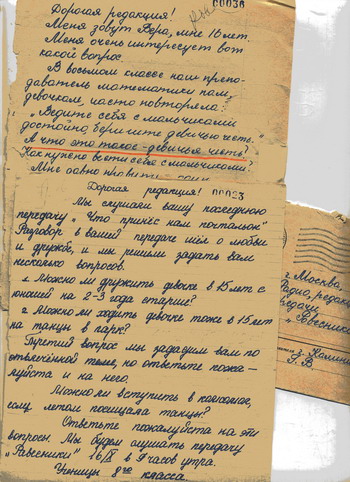 00036
Дорогая редакция!
Меня зовут Вера, мне 16 лет.
Меня очень интересует вот
какой вопрос.
В восьмом классе наш препо-
даватель математики нам,
девочкам, часто повторял:
"Ведите себя с мальчиками
достойно, берегите девичью честь."
А что это такое - девичья честь?
Как нужно вести себя с мальчиками.
Мне давно нравится один
Дорогая редакция! 00023
Мы слушали вашу последнюю
передачу "Что принёс нам почтальон"
Разговор в вашей передаче шёл о любви
и дружбе, и мы решили задать вам
несколько вопросов.
1. Можно ли дружить девочке в 15 лет с
юношей на 2-3 года старше?
2. Можно ли ходить девочке тоже в 15 лет
на танцы в парк?
Третий вопрос мы зададим вам по
отвлечённой теме, но ответьте пожа-
луйста и на него.
Можно ли вступить в комсомол,
если летом посещала танцы?
Ответьте пожалуйста на эти
вопросы. Мы будем слушать передачу
"Ровесники" 16/IX в 9 часов утра.
Ученицы 8го класса.
г. Москва,
Радио, редак
передачи
"Ровесники
г. Калинин
Г. В